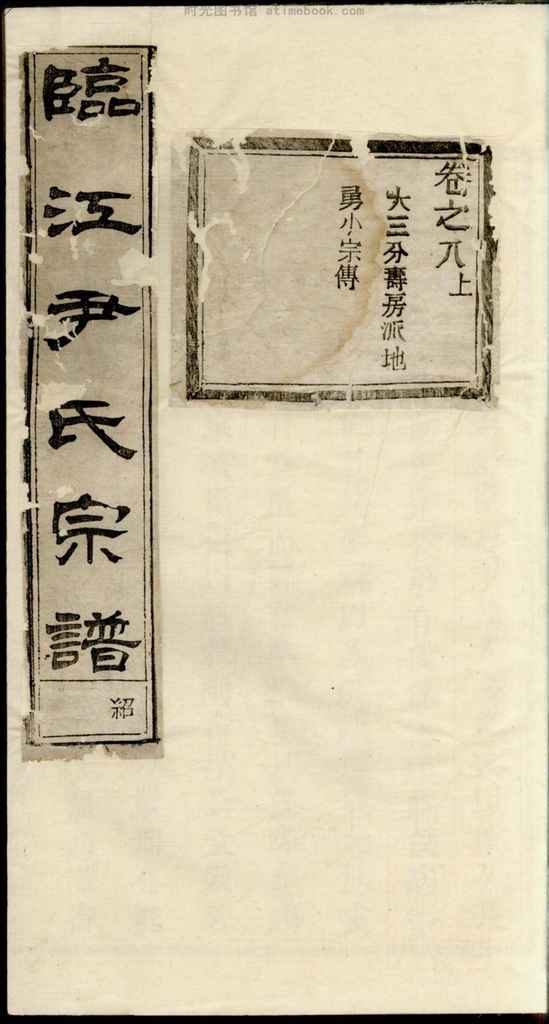 时光图书馆 atimebook.com
卷之八上
大三分壽房派地
勇小宗傳
臨江尹氏宗譜
紹